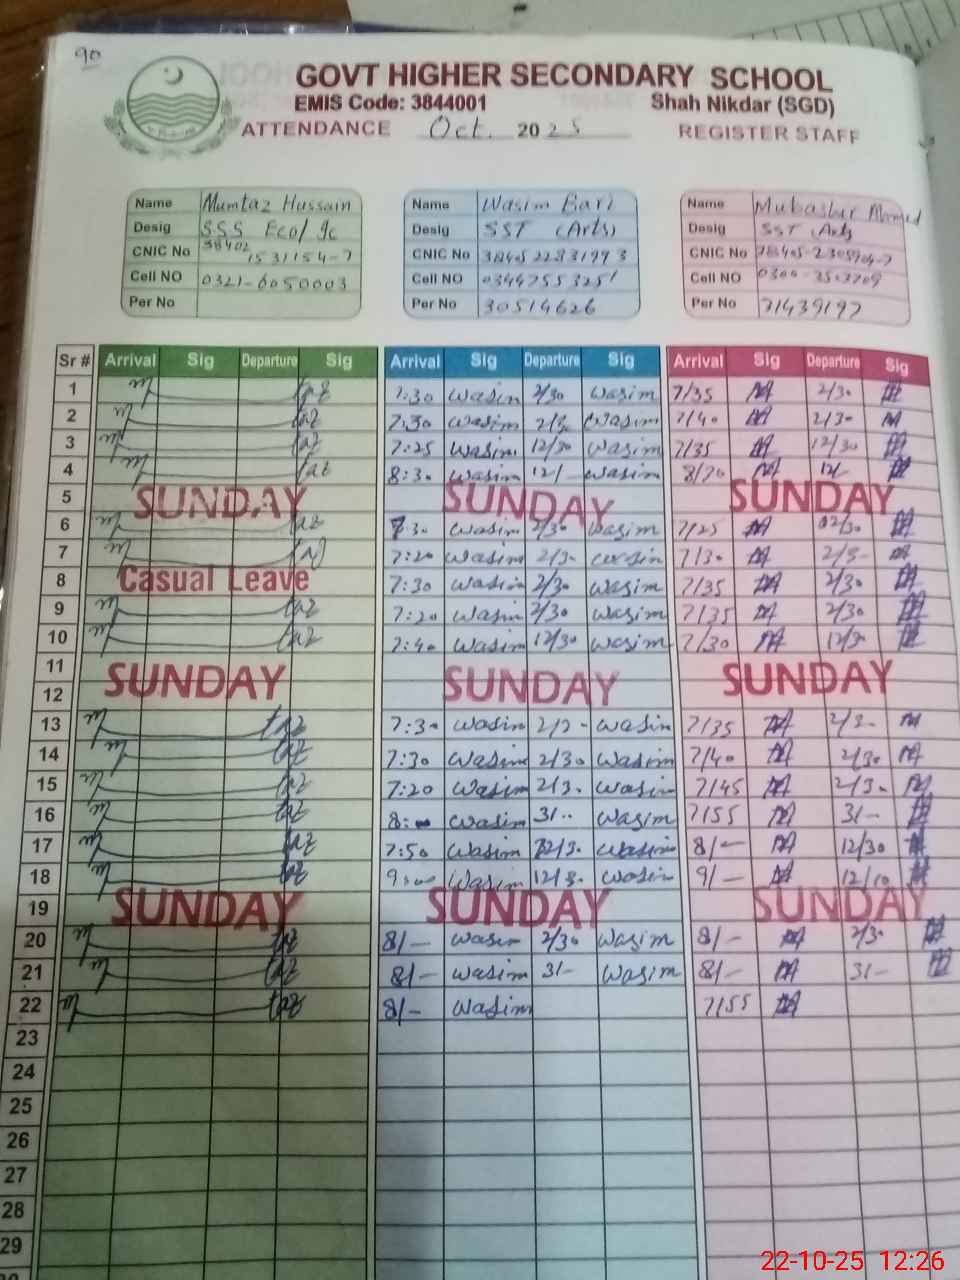 90
GOVT HIGHER SECONDARY SCHOOL
EMIS Code: 3844001 Shah Nikdar (SGD)
ATTENDANCE Oct. 2025 REGISTER STAFF
Name Mumtaz Hussain Name Wasim Bari Name Mubashir Ahmed
Desig SSS Eco/ Ic Desig SST (Arts) Desig SST (Arts
CNIC No 38402 1531154-7 CNIC No 38405 2283199 3 CNIC No
Cell NO 0321-6050003 Cell NO 03447553251 Cell NO
Per No Per No 30514626 Per No 31439197
Sr # Arrival Sig Departure Sig Arrival Sig Departure Sig Arrival Sig Departure Sig
1 7:30 Wasim 2/30 Wasim 7/35 2/30
2 7:30 Wasim Wasim 7/40 2/30
3 7:25 Wasim 12/30 Wasim 7/35 12/30
4 8:30 Wasim 12/- Wasim 12/-
5 SUNDAY SUNDAY SUNDAY
6 Wasim 2/30 Wasim 7/25 02/30
7 7:20 Wasim 2/3- Wasim 7/30 2/3-
8 Casual Leave 7:30 Wasim 2/30 Wasim 7/35 2/30
9 7:20 Wasim 2/30 Wasim 7/35 2/30
10 7:40 Wasim 12/30 Wasim 7/30 12/30
11
12 SUNDAY SUNDAY SUNDAY
13 7:30 Wasim Wasim 7/35 2/3-
14 7:30 Wasim 2/30 Wasim 7/40 2/30
15 7:20 Wasim 2/3- Wasim 7/45 2/3-
16 8:- Wasim 31-- Wasim 7/55 31-
17 7:50 Wasim Wasim 8/- 12/30
18 9:00 Wasim 12/3- Wasim 9/- 12/10
19 SUNDAY SUNDAY SUNDAY
20 8/- Wasim 2/30 Wasim 8/- 2/30
21 8/- Wasim 31- Wasim 8/- 31-
22 8/- Wasim 7/55
23
24
25
26
27
28
29
22-10-25 12:26